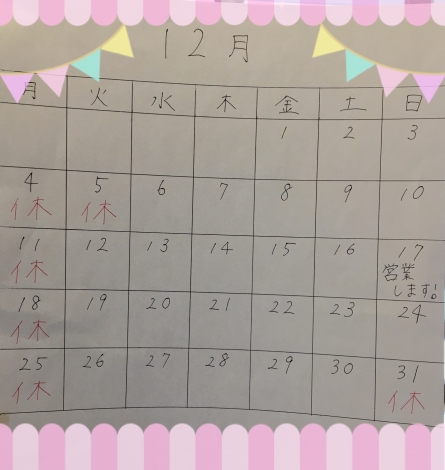 12月
月 火 水 木 金 土 日
1 2 3
4 5 6 7 8 9 10
休 休
11 12 13 14 15 16 17
休 営業
します!
18 19 20 21 22 23 24
休
25 26 27 28 29 30 31
休 休